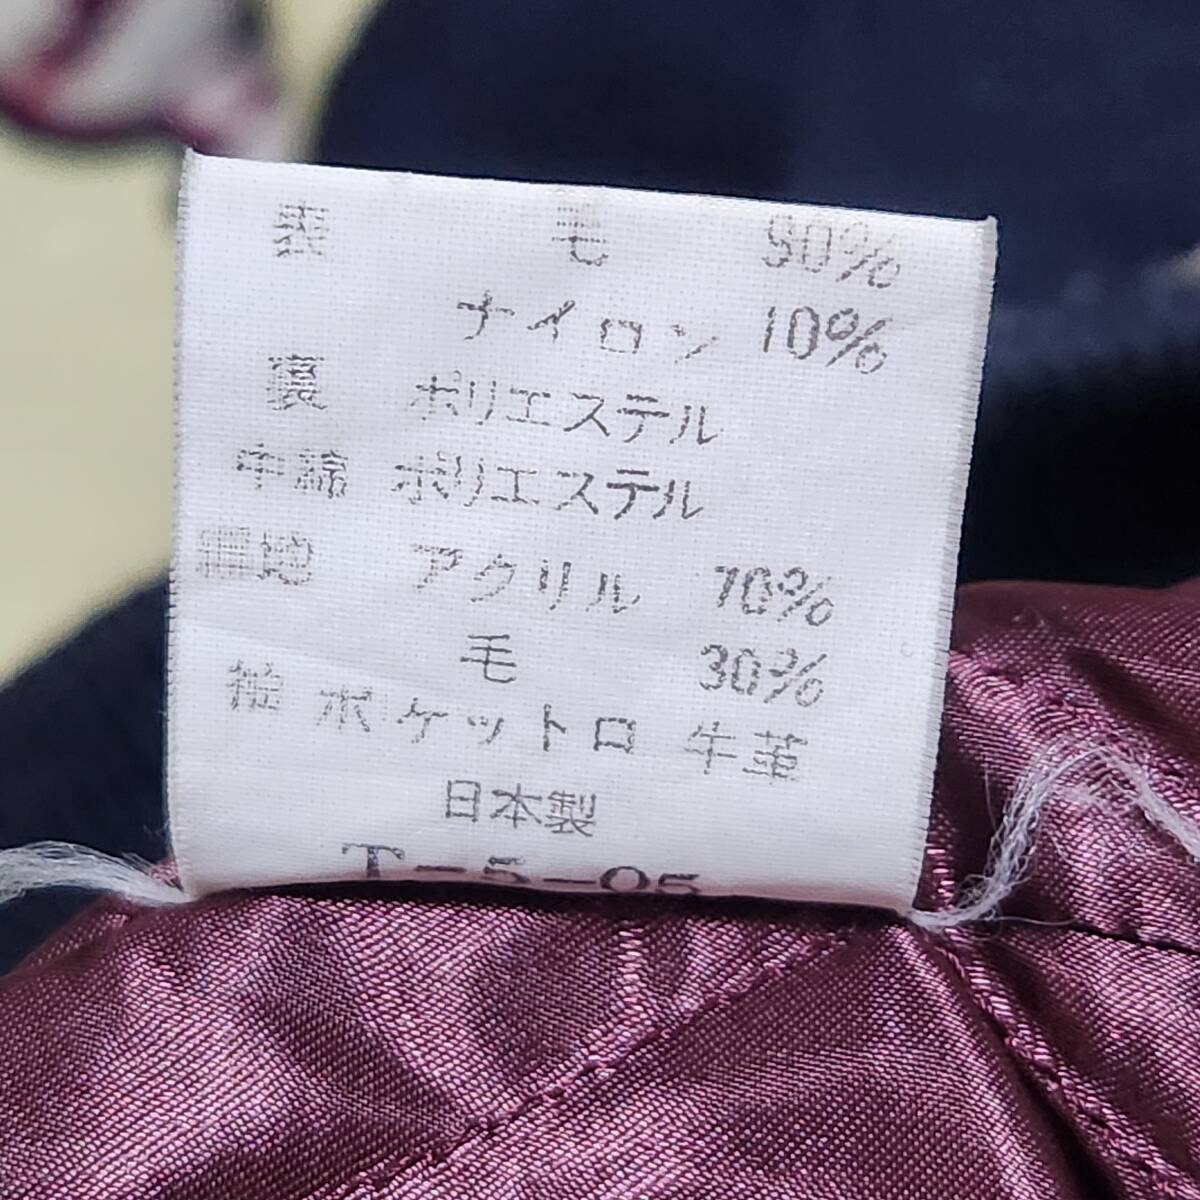 表 毛 90%
ナイロン 10%
裏 ポリエステル
中綿 ポリエステル
アクリル 70%
毛 30%
袖 ポケット口 牛革
日本製
T-5-05